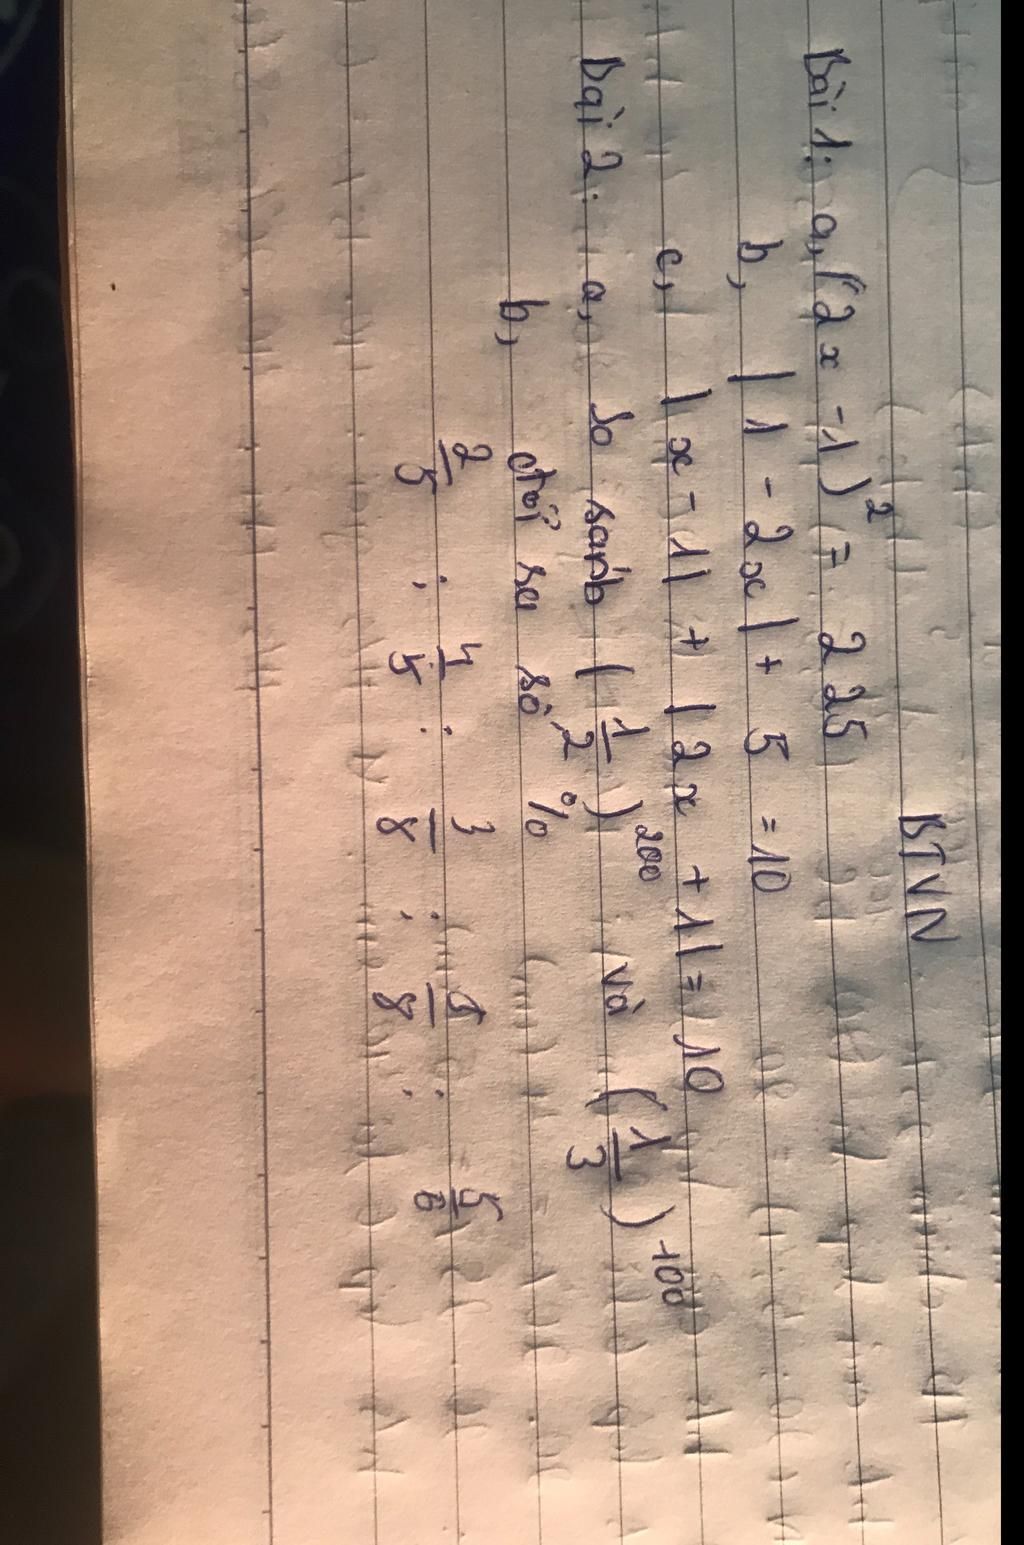 BTVN
Bài 1: a, (2x -1)² = 225
b, | 1 - 2x | + 5 = 10
c, | x - 1| + | 2x + 1| = 10
Bài 2: a, So sánh (1/2)²⁰⁰ và (1/3)¹⁰⁰
b, đổi ra số %
2/5 ; 4/5 ; 3/8 ; 1/8 ; 5/6